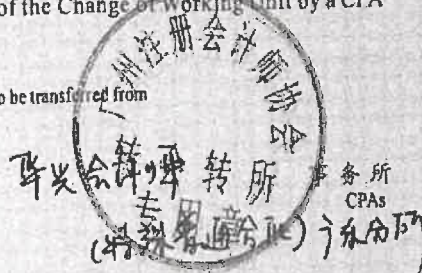 of the Change of Working Unit by a CPA
to be transferred from
广州注册会计师协会
华兴会计师 事务所
转所
CPAs
专用章
(特殊普通合伙)